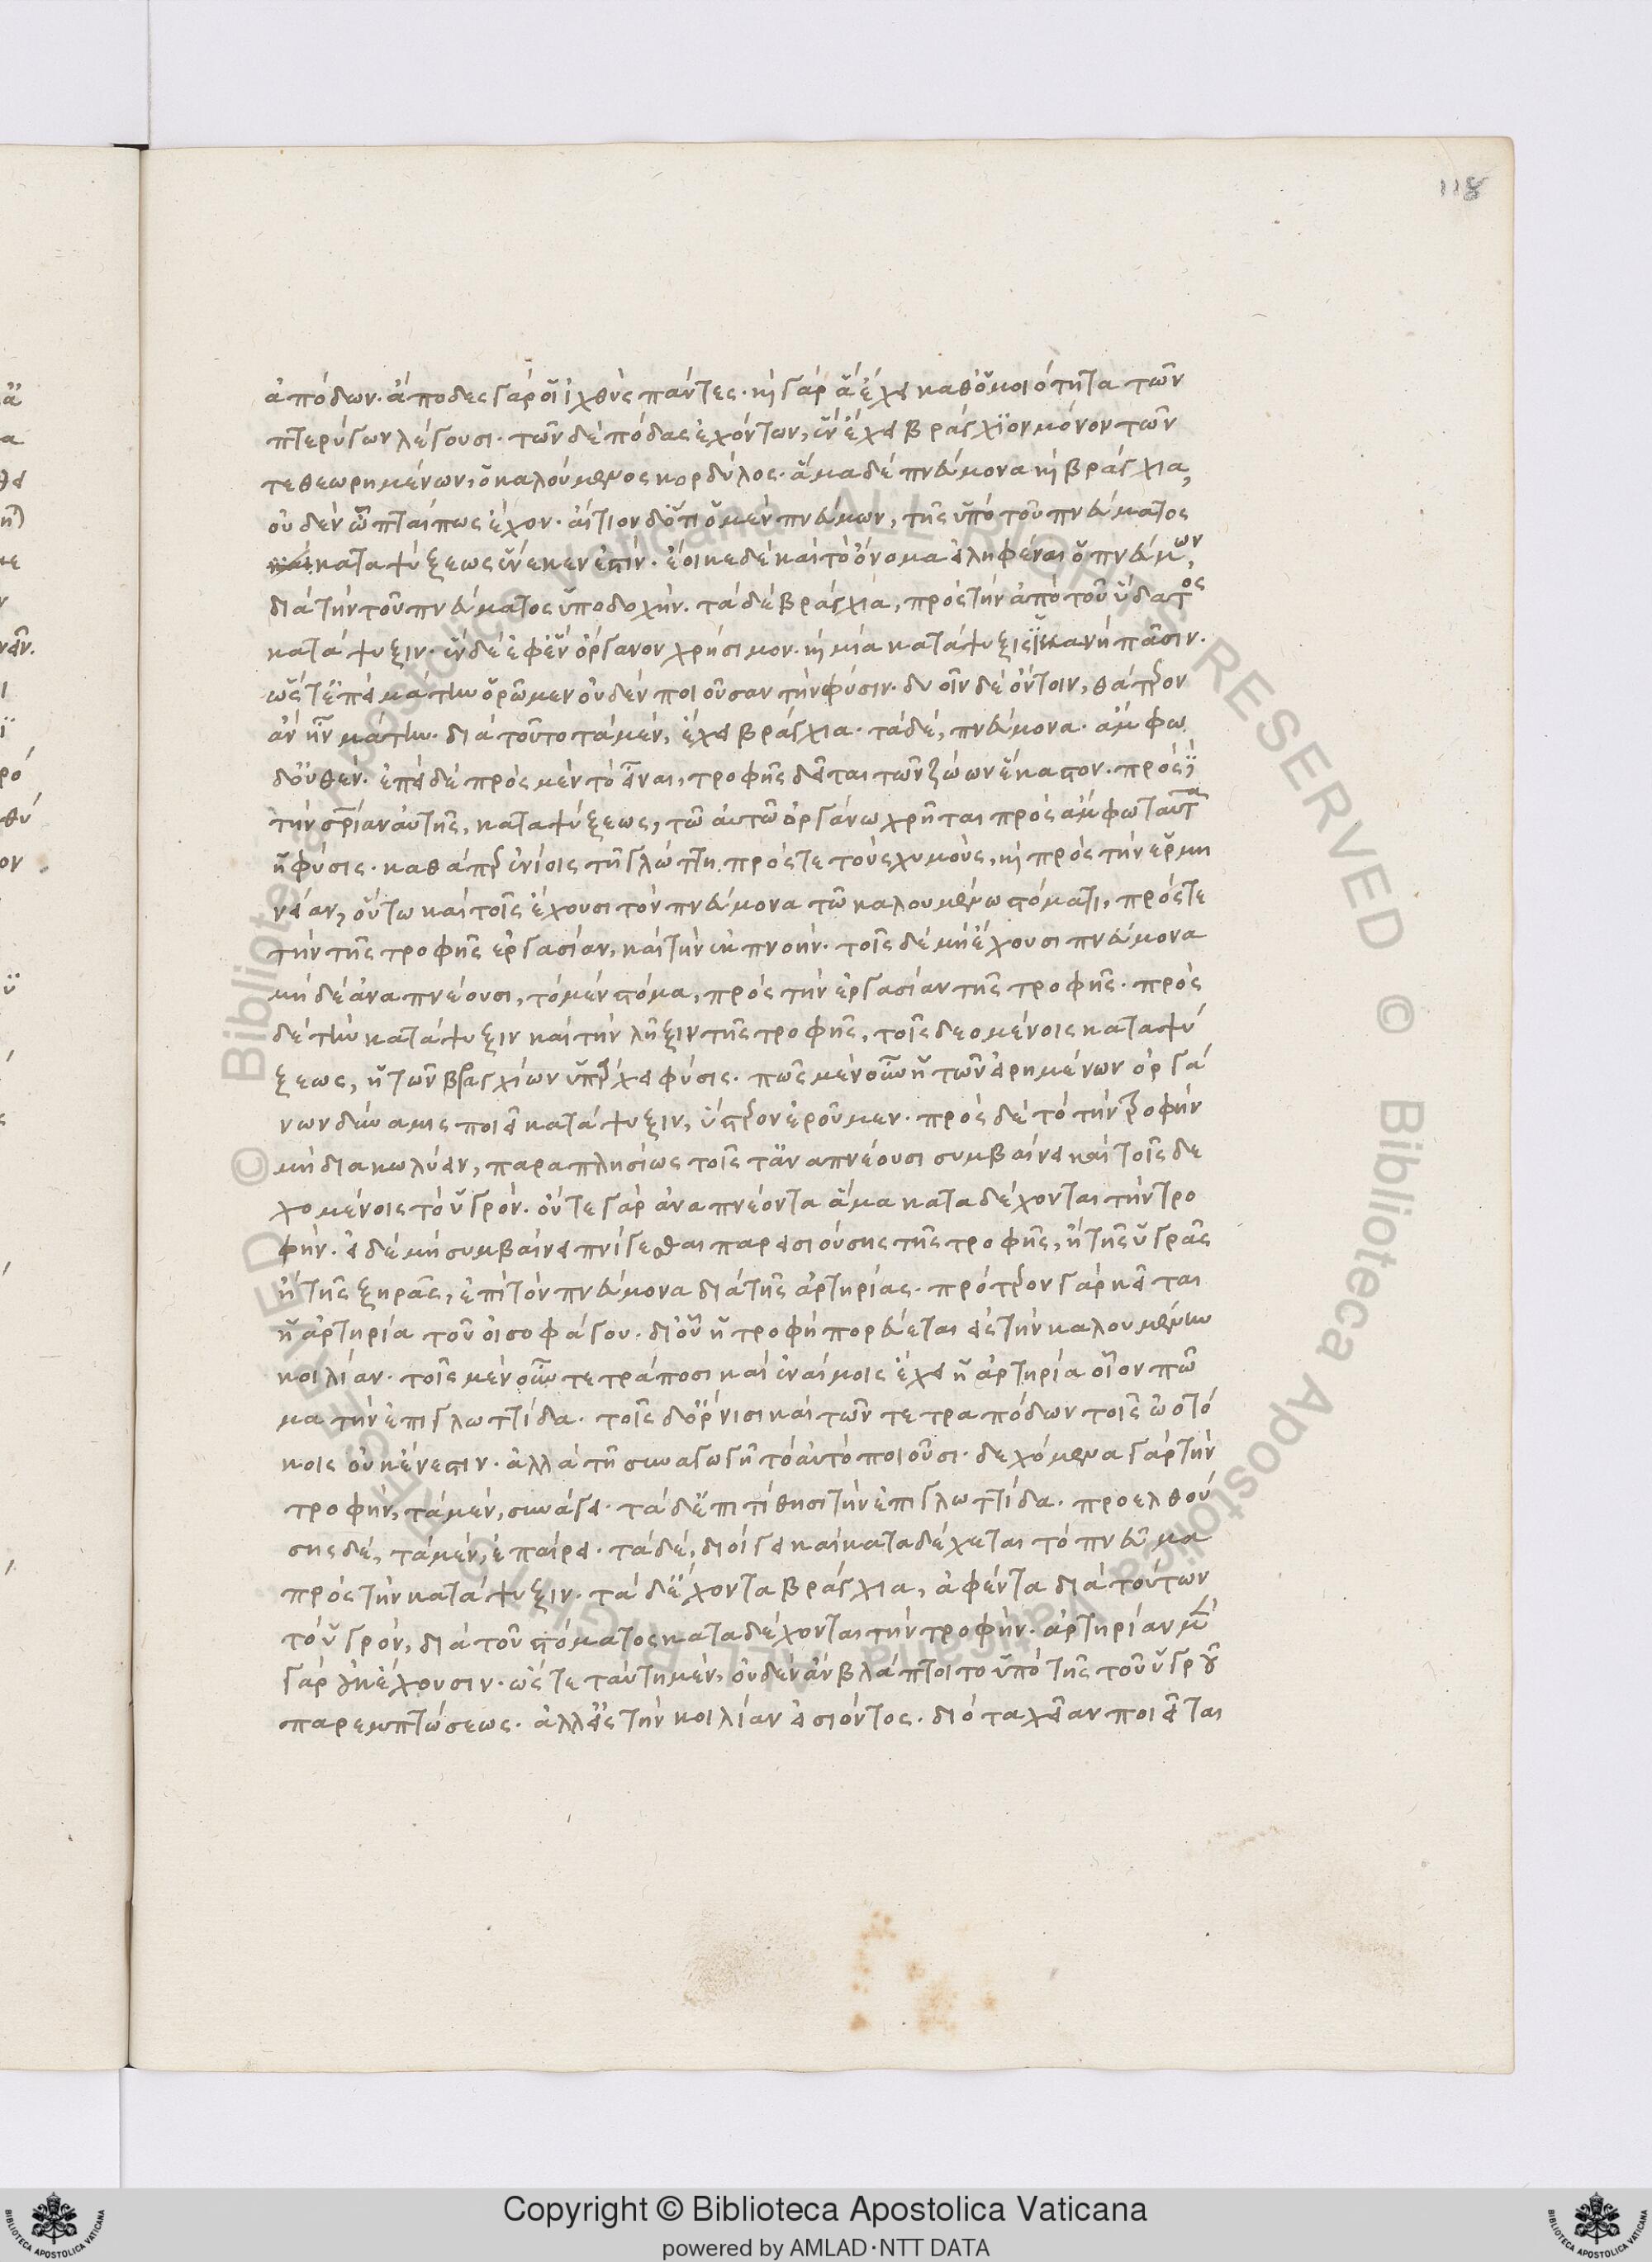 118
ἀπόδων. ἄποδες γάρ οἱ ἰχθύς πάντες. καὶ γάρ ἃ ἔχει καθ' ὁμοιότητα τῶν
πτερύγων λέγουσι. τῶν δέ πόδας ἐχόντων, ἓν ἔχει βράγχιον μόνον τῶν
τεθεωρημένων, ὁ καλούμενος κορδύλος. ἅμα δέ πνεύμονα καὶ βράγχια,
οὐδέν ὦπταί πως ἔχον. αἴτιον δ' ὅτι ὁ μέν πνεύμων, τῆς ὑπό τοῦ πνεύματος
καταψύξεως ἕνεκεν ἐστίν. ἔοικε δέ καί τό ὄνομα εἰληφέναι ὁ πνεύμων,
διά τήν τοῦ πνεύματος ὑποδοχήν. τά δέ βράγχια, πρός τήν ἀπό τοῦ ὕδατος
κατάψυξιν. ἓν δέ ἐφ' ἓν ὄργανον χρήσιμον. καὶ μία κατάψυξις ἱκανή πᾶσιν.
ὥστ' ἐπεί μάτην ὁρῶμεν οὐδέν ποιοῦσαν τήν φύσιν. δυοῖν δέ ὄντοιν, θάτερον
ἄν ἦν μάτην. διά τοῦτο τά μέν, ἔχει βράγχια. τά δέ, πνεύμονα. ἄμφω
δ' οὐθέν. ἐπεί δέ πρός μέν τό εἶναι, τροφῆς δεῖται τῶν ζώων ἕκαστον. πρός δὲ
τήν σωτηρίαν αὐτῆς, καταψύξεως, τῶ αὐτῶ ὀργάνω χρῆται πρός ἄμφω ταῦτα
ἡ φύσις. καθάπερ ἐνίοις τῇ γλώττῃ πρός τε τούς χυμούς, καὶ πρός τήν ἑρμη
νείαν, οὕτω καί τοῖς ἔχουσι τόν πνεύμονα τῶ καλουμένω στόματι, πρός τε
τήν τῆς τροφῆς ἐργασίαν, καί τήν ἐκπνοήν. τοῖς δέ μή ἔχουσι πνεύμονα
μηδέ ἀναπνέουσι, τό μέν στόμα, πρός τήν ἐργασίαν τῆς τροφῆς. πρός
δέ τήν κατάψυξιν καί τήν λῆξιν τῆς τροφῆς, τοῖς δεομένοις καταψύ
ξεως, ἡ τῶν βραγχίων ὑπάρχει φύσις. πῶς μέν οὖν ἡ τῶν εἰρημένων ὀργά
νων δύναμις ποιεῖ κατάψυξιν, ὕστερον ἐροῦμεν. πρός δέ τό τήν τροφήν
μή διακωλύειν, παραπλησίως τοῖς τ' ἀναπνέουσι συμβαίνει καί τοῖς δε
χομένοις τό ὑγρόν. οὔτε γάρ ἀναπνέοντα ἅμα καταδέχονται τήν τρο
φήν. εἰ δέ μή συμβαίνει πνίγεσθαι παρεισιούσης τῆς τροφῆς, ἤ τῆς ὑγρᾶς
ἤ τῆς ξηρᾶς, ἐπί τόν πνεύμονα διά τῆς ἀρτηρίας. πρότερον γάρ κεῖται
ἡ ἀρτηρία τοῦ οἰσοφάγου. δι' οὗ ἡ τροφή πορεύεται εἰς τήν καλουμένην
κοιλίαν. τοῖς μέν οὖν τετράποσι καί ἐναίμοις ἔχει ἡ ἀρτηρία οἷον πῶ
μα τήν ἐπιγλωττίδα. τοῖς δ' ὄρνισι καί τῶν τετραπόδων τοῖς ὠοτό
κοις οὐκ ἔνεστιν. ἀλλά τῇ συναγωγῇ τό αὐτό ποιοῦσι. δεχόμενα γάρ τήν
τροφήν, τά μέν, συνάγει. τά δ' ἐπιτίθησι τήν ἐπιγλωττίδα. προελθού
σης δέ, τά μέν, ἐπαίρει. τά δέ, διοίγει καί καταδέχεται τό πνεῦμα
πρός τήν κατάψυξιν. τά δ' ἔχοντα βράγχια, ἀφέντα διά τούτων
τό ὑγρόν, διά τοῦ στόματος καταδέχονται τήν τροφήν. ἀρτηρίαν μέν
γάρ οὐκ ἔχουσιν. ὥστε ταύτῃ μέν, οὐδέν ἄν βλάπτοιτο ὑπό τῆς τοῦ ὑγροῦ
παρεμπτώσεως. ἀλλ' εἰς τήν κοιλίαν εἰσιόντος. διό ταχεῖαν ποιεῖται
Copyright © Biblioteca Apostolica Vaticana
powered by AMLAD·NTT DATA